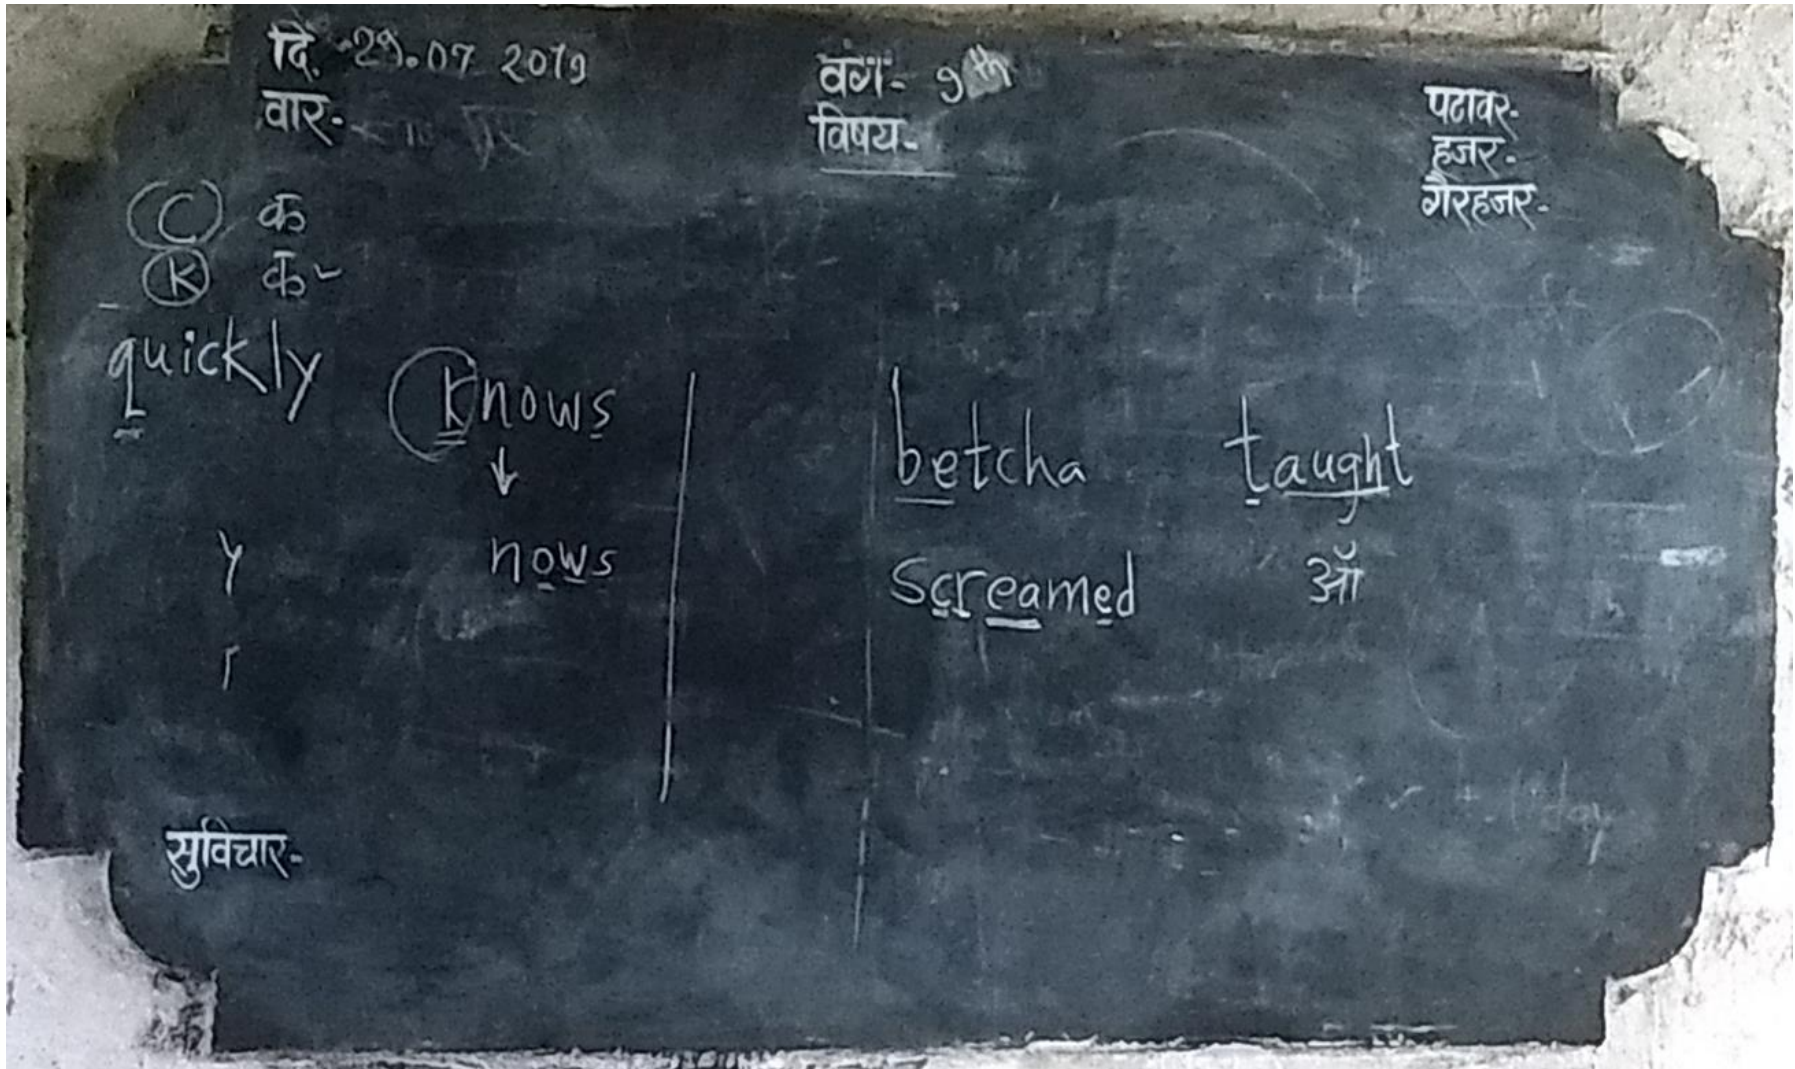 दि. -29.07 2019
वार-
वर्ग- 9th
विषय-
पटावर-
हजर-
गैरहजर-
C क
K क
quickly
knows
nows
y
r
betcha taught
screamed ऑ
सुविचार-